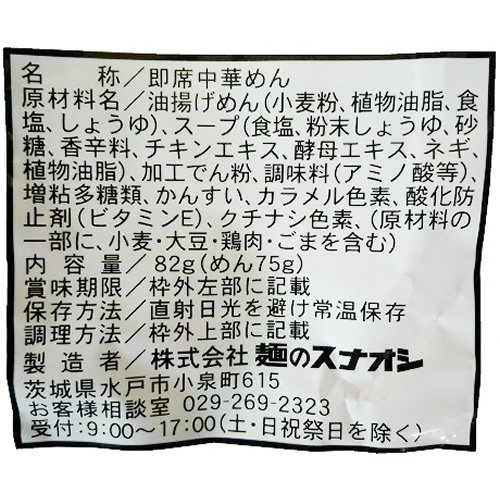 名　　称／即席中華めん
原材料名／油揚げめん(小麦粉、植物油脂、食
塩、しょうゆ)、スープ(食塩、粉末しょうゆ、砂
糖、香辛料、チキンエキス、酵母エキス、ネギ、
植物油脂)、加工でん粉、調味料(アミノ酸等)、
増粘多糖類、かんすい、カラメル色素、酸化防
止剤(ビタミンE)、クチナシ色素、(原材料の
一部に、小麦・大豆・鶏肉・ごまを含む)
内 容 量／82g(めん75g)
賞味期限／枠外左部に記載
保存方法／直射日光を避け常温保存
調理方法／枠外上部に記載
製 造 者／株式会社 麺のスナオシ
茨城県水戸市小泉町615
お客様相談室 029-269-2323
受付:9:00〜17:00(土・日祝祭日を除く)